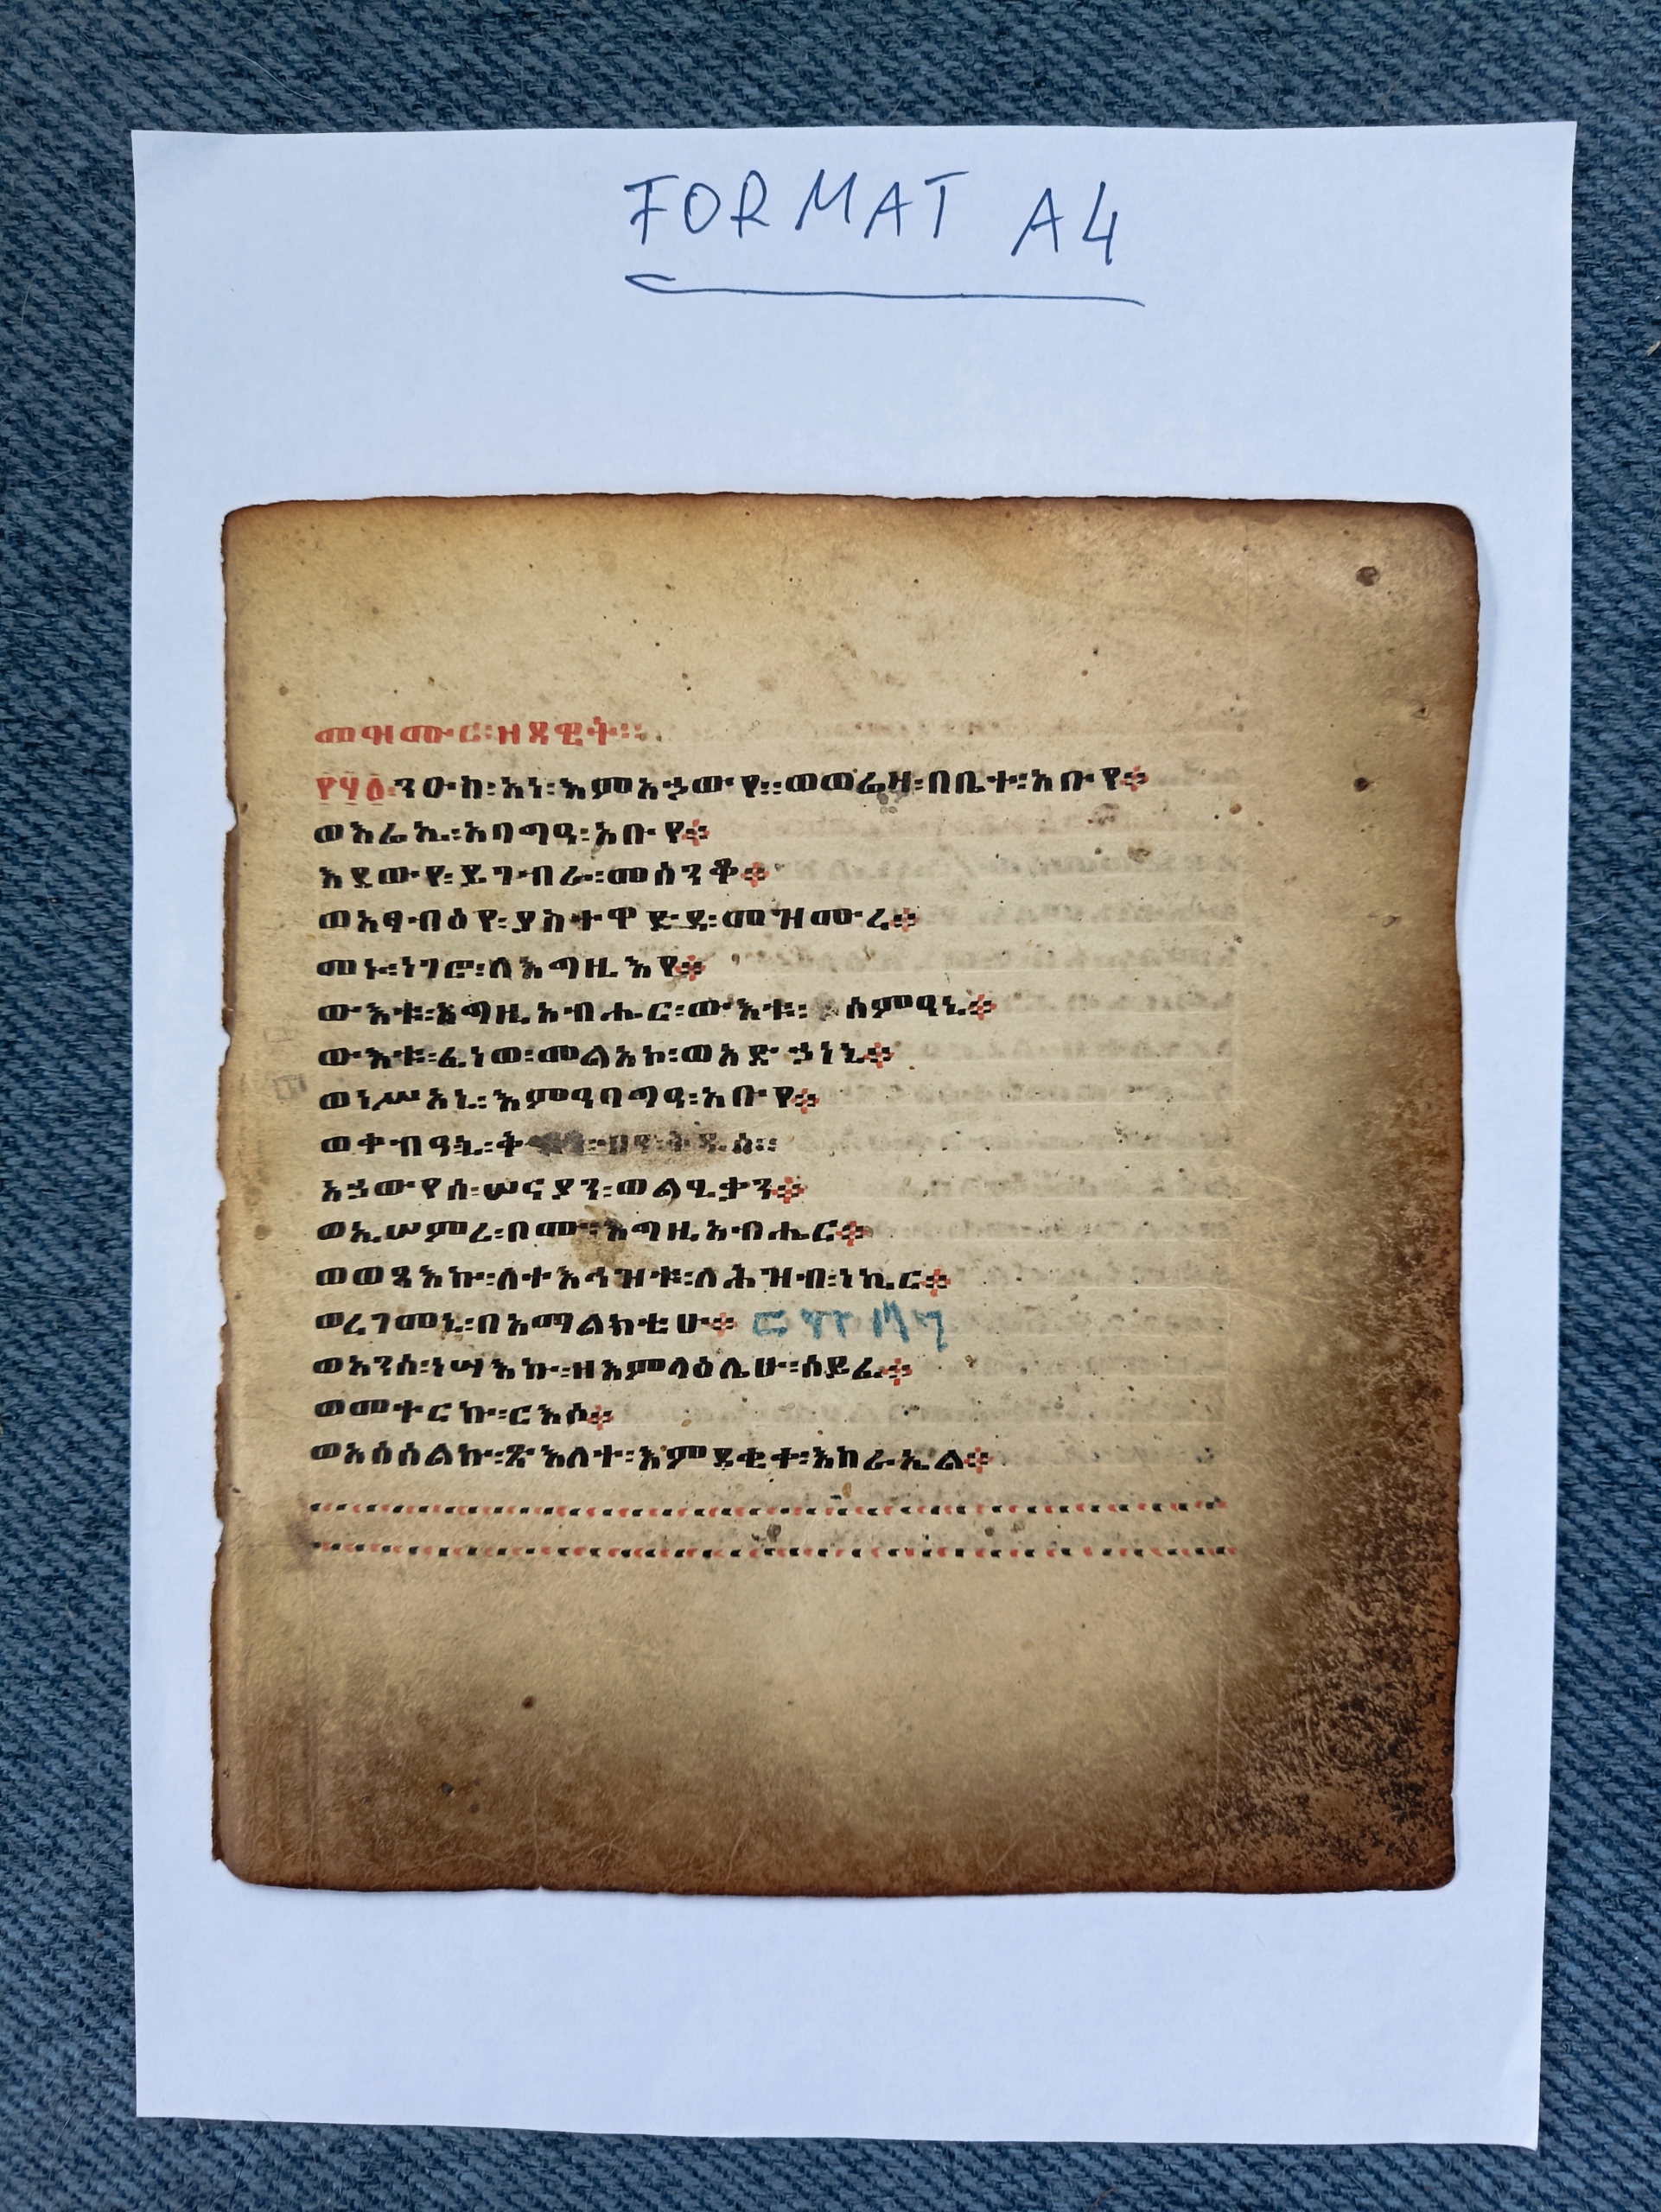 FORMAT A4
መዝሙር፡ዘዳዊት።
ንዑስ፡አነ፡እምአኃውየ።ወወሬዛ፡በቤተ፡አቡየ፨
ወእሬኢ፡አባግዓ፡አቡየ፨
እደውየ፡ይገብራ፡መሰንቆ፨
ወአፃብዕየ፡ያስተዋድዳ፡መዝሙረ፨
መኑ፡ነገሮ፡ለእግዚእየ፨
ውእቱ፡እግዚአብሔር፡ውእቱ፡ ሰምዓኒ፨
ውእቱ፡ፈነወ፡መልአኮ፡ወአድኃነኒ፨
ወነሥአኒ፡እምዓባግዓ፡አቡየ፨
ወቀብዓኒ፡
አኃውየሰ፡ሠናያን፡ወልሂቃን፨
ወኢሠምረ፡በሙ፡እግዚአብሔር፨
ወወፃእኩ፡ለተእኅዝቱ፡ለሕዝብ፡ነኪር፨
ወረገመኒ፡በአማልክቲሁ፨
ወአንሰ፡ነሣእኩ፡ዘእምላዕሌሁ፡ሰይፈ፨
ወመተርኩ፡ርእሶ፨
ወአሰሰልኩ፡ጽእለተ፡እምደቂቀ፡እስራኤል፨